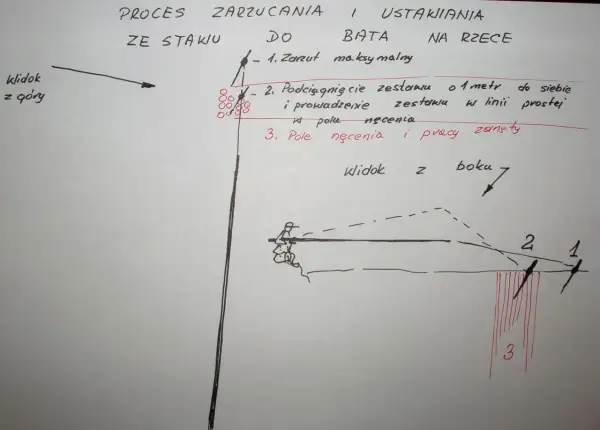 PROCES ZARZUCANIA I USTAWIANIA
ZESTAWU DO BATA NA RZECE
Widok
z góry
1. Zarzut maksymalny
2. Podciągnięcie zestawu o 1 metr do siebie
i prowadzenie zestawu w linii prostej
w polu nęcenia
3. Pole nęcenia i pracy zanęty
Widok z boku
2 1
3